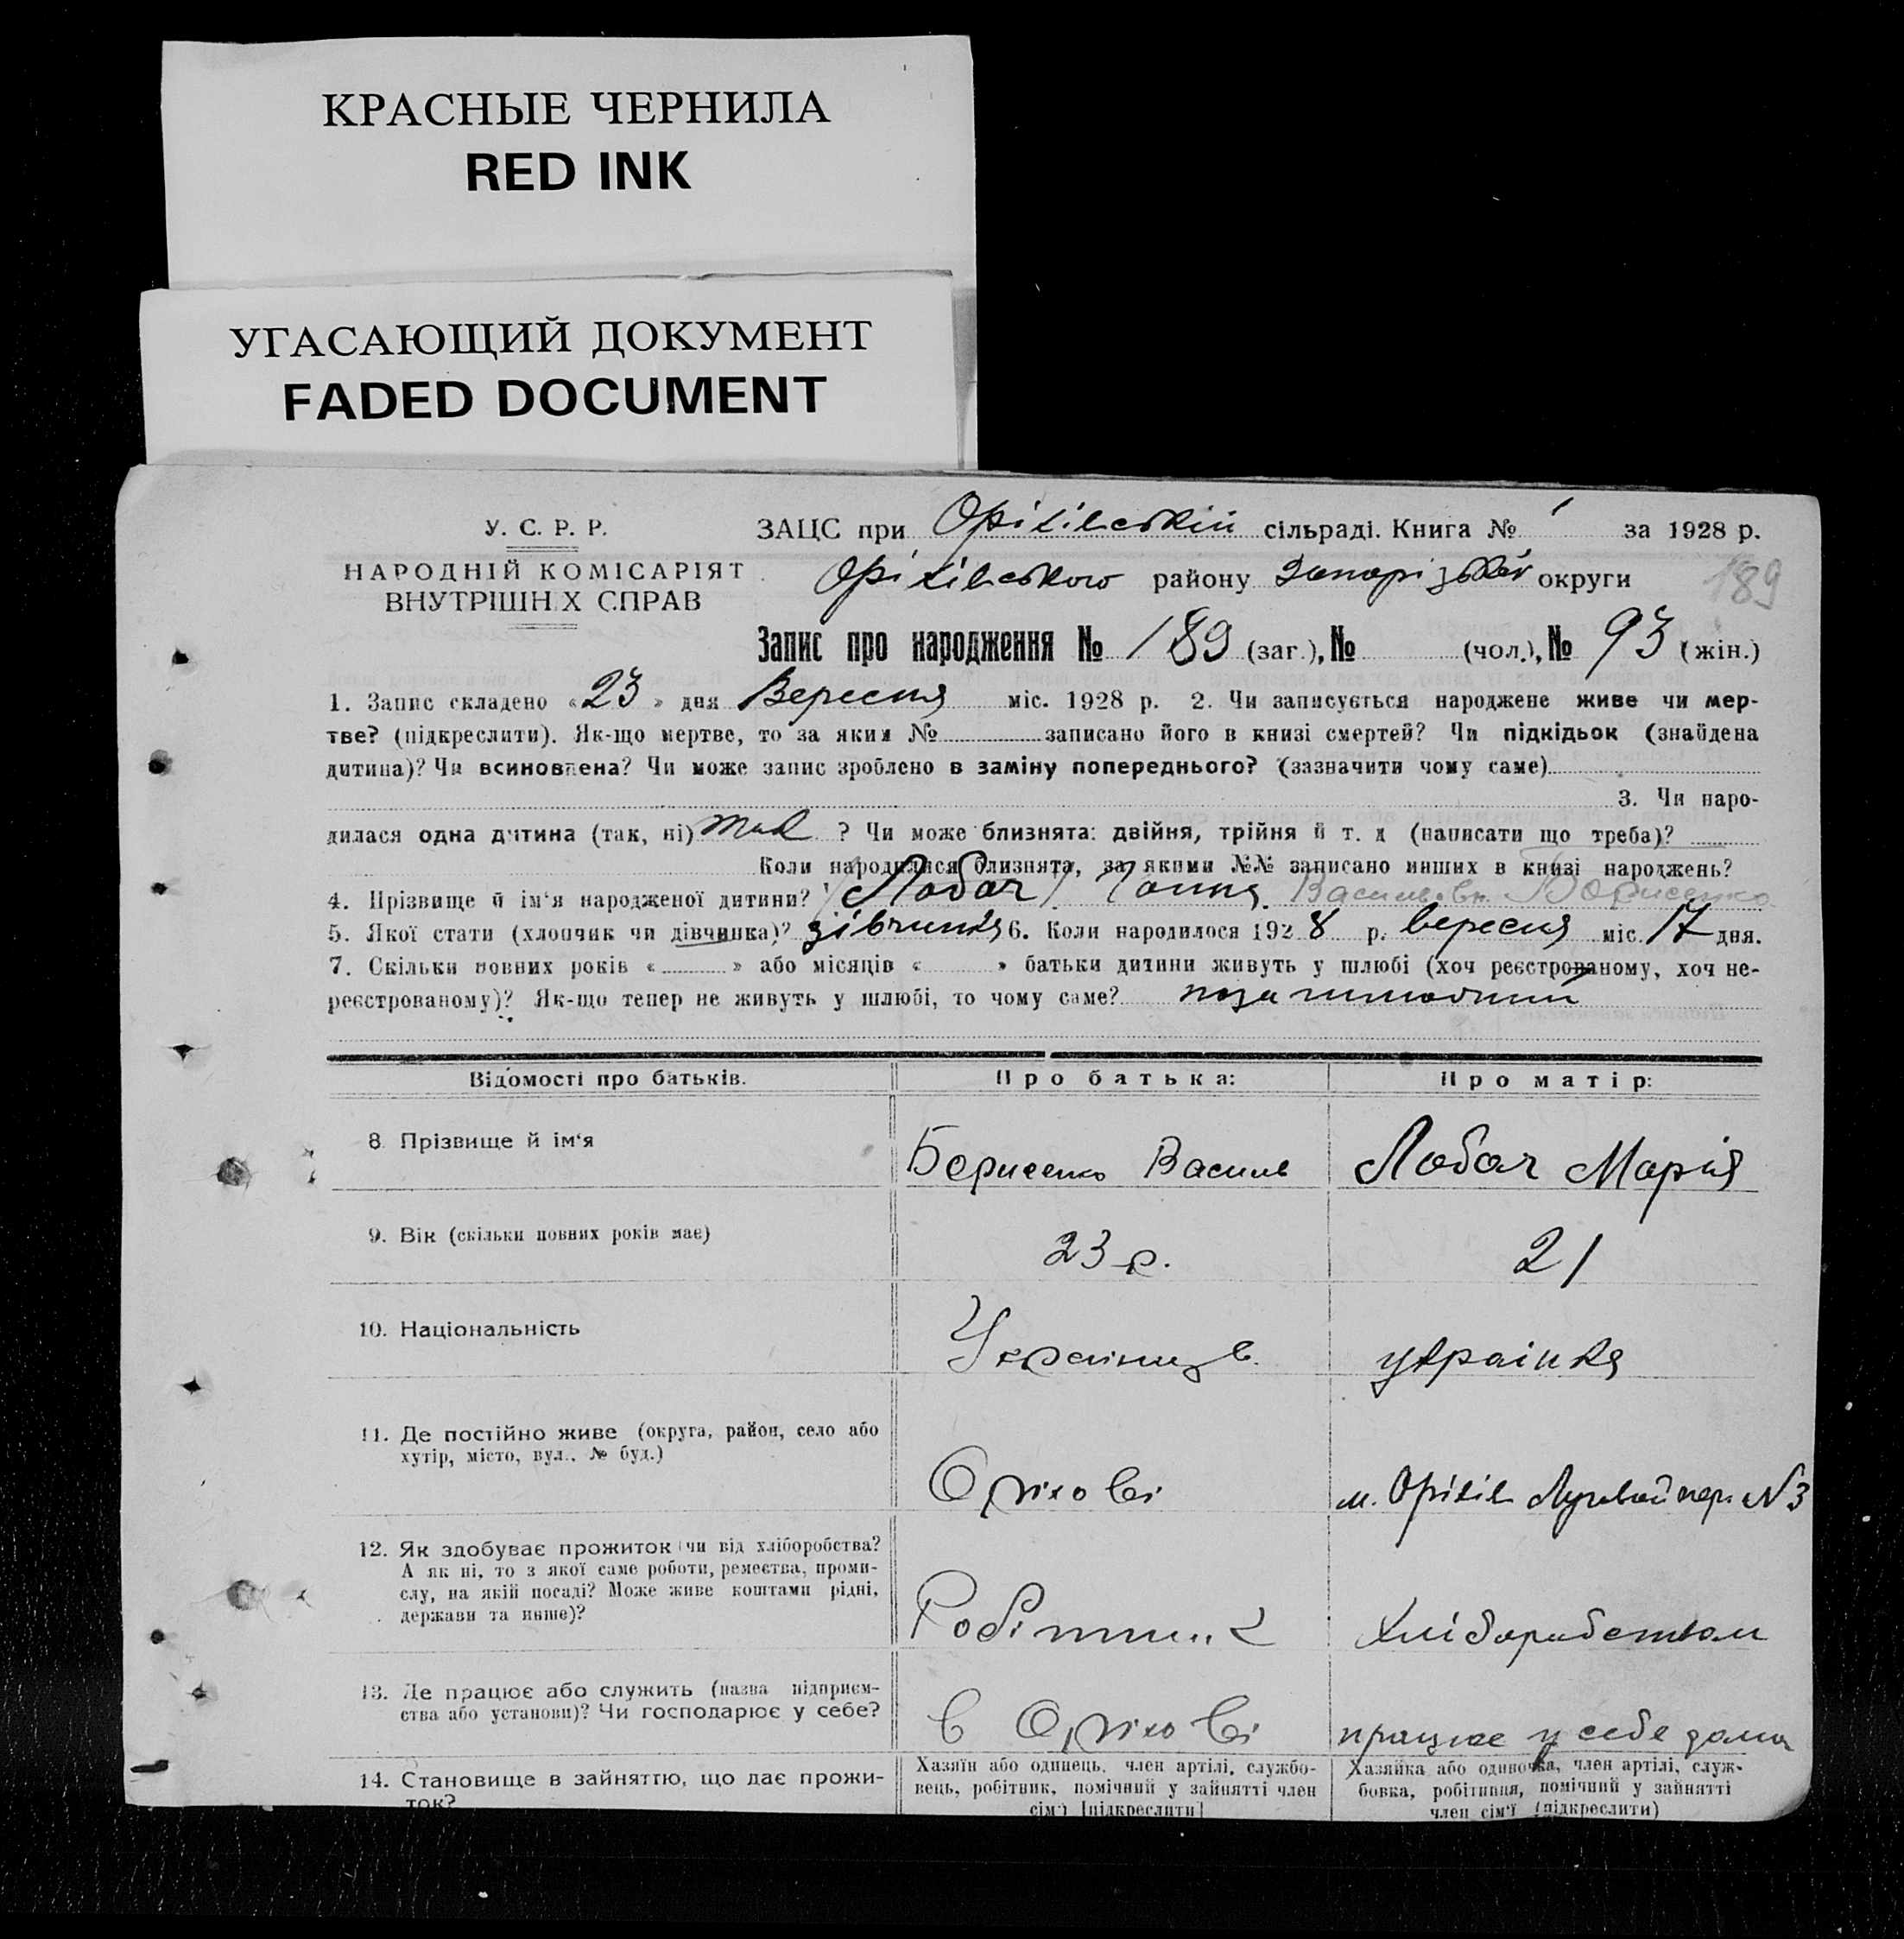 КРАСНЫЕ ЧЕРНИЛА
RED INK
УГАСАЮЩИЙ ДОКУМЕНТ
FADED DOCUMENT
У. С. Р. Р.
НАРОДНІЙ КОМІСАРІЯТ
ВНУТРІШН.Х СПРАВ
ЗАЦС при Оріхівській сільраді. Книга № 1 за 1928 р.
Оріхівського району Запорізькой округи
189
Запис про народження № 189 (заг.), № (чол.), № 93 (жін.)
1. Запис складено «23» дня Вересня міс. 1928 р. 2. Чи записується народжене живе чи мер-
тве? (підкреслити). Як-що мертве, то за яким № записано його в книзі смертей? Чи підкідьок (знайдена
дитина)? Чи всиновлена? Чи може запис зроблено в заміну попереднього? (зазначити чому саме)
3. Чи наро-
дилася одна дитина (так, ні) так ? Чи може близнята: двійня, трійня й т. д (написати що треба)?
Коли народилися близнята, за якими №№ записано инших в книзі народжень?
4. Прізвище й ім'я народженої дитини? (Лобач) Васильевн. Борисенко
5. Якої стати (хлопчик чи дівчинка)? дівчинка 6. Коли народилося 1928 р. вересня міс. 17 дня.
7. Скільки повних років « » або місяців « » батьки дитини живуть у шлюбі (хоч реєстрованому, хоч не-
реєстрованому)? Як-що тепер не живуть у шлюбі, то чому саме?
Відомості про батьків.
Про батька:
Про матір:
8. Прізвище й ім'я
Борисенко Василь
Лобач Марія
9. Вік (скільки повних років має)
23 р.
21
10. Національність
Українець
українка
11. Де постійно живе (округа, район, село або
хутір, місто, вул., № буд.)
Оріхові
м. Оріхів пер. № 3
12. Як здобуває прожиток (чи від хліборобства?
А як ні, то з якої саме роботи, ремества, проми-
слу, на якій посаді? Може живе коштами рідні,
держави та инше)?
Робітник
Хліборобством
13. Де працює або служить (назва підприєм-
ства або установи)? Чи господарює у себе?
в Оріхові
працює у себе дома
14. Становище в зайняттю, що дає прожи-
ток?
Хазяїн або одинець, член артілі, службо-
вець, робітник, помічний у зайнятті член
сім'ї [підкреслити]
Хазяйка або одиночка, член артілі, служ-
бовка, робітниця, помічний у зайнятті
член сім'ї (підкреслити)